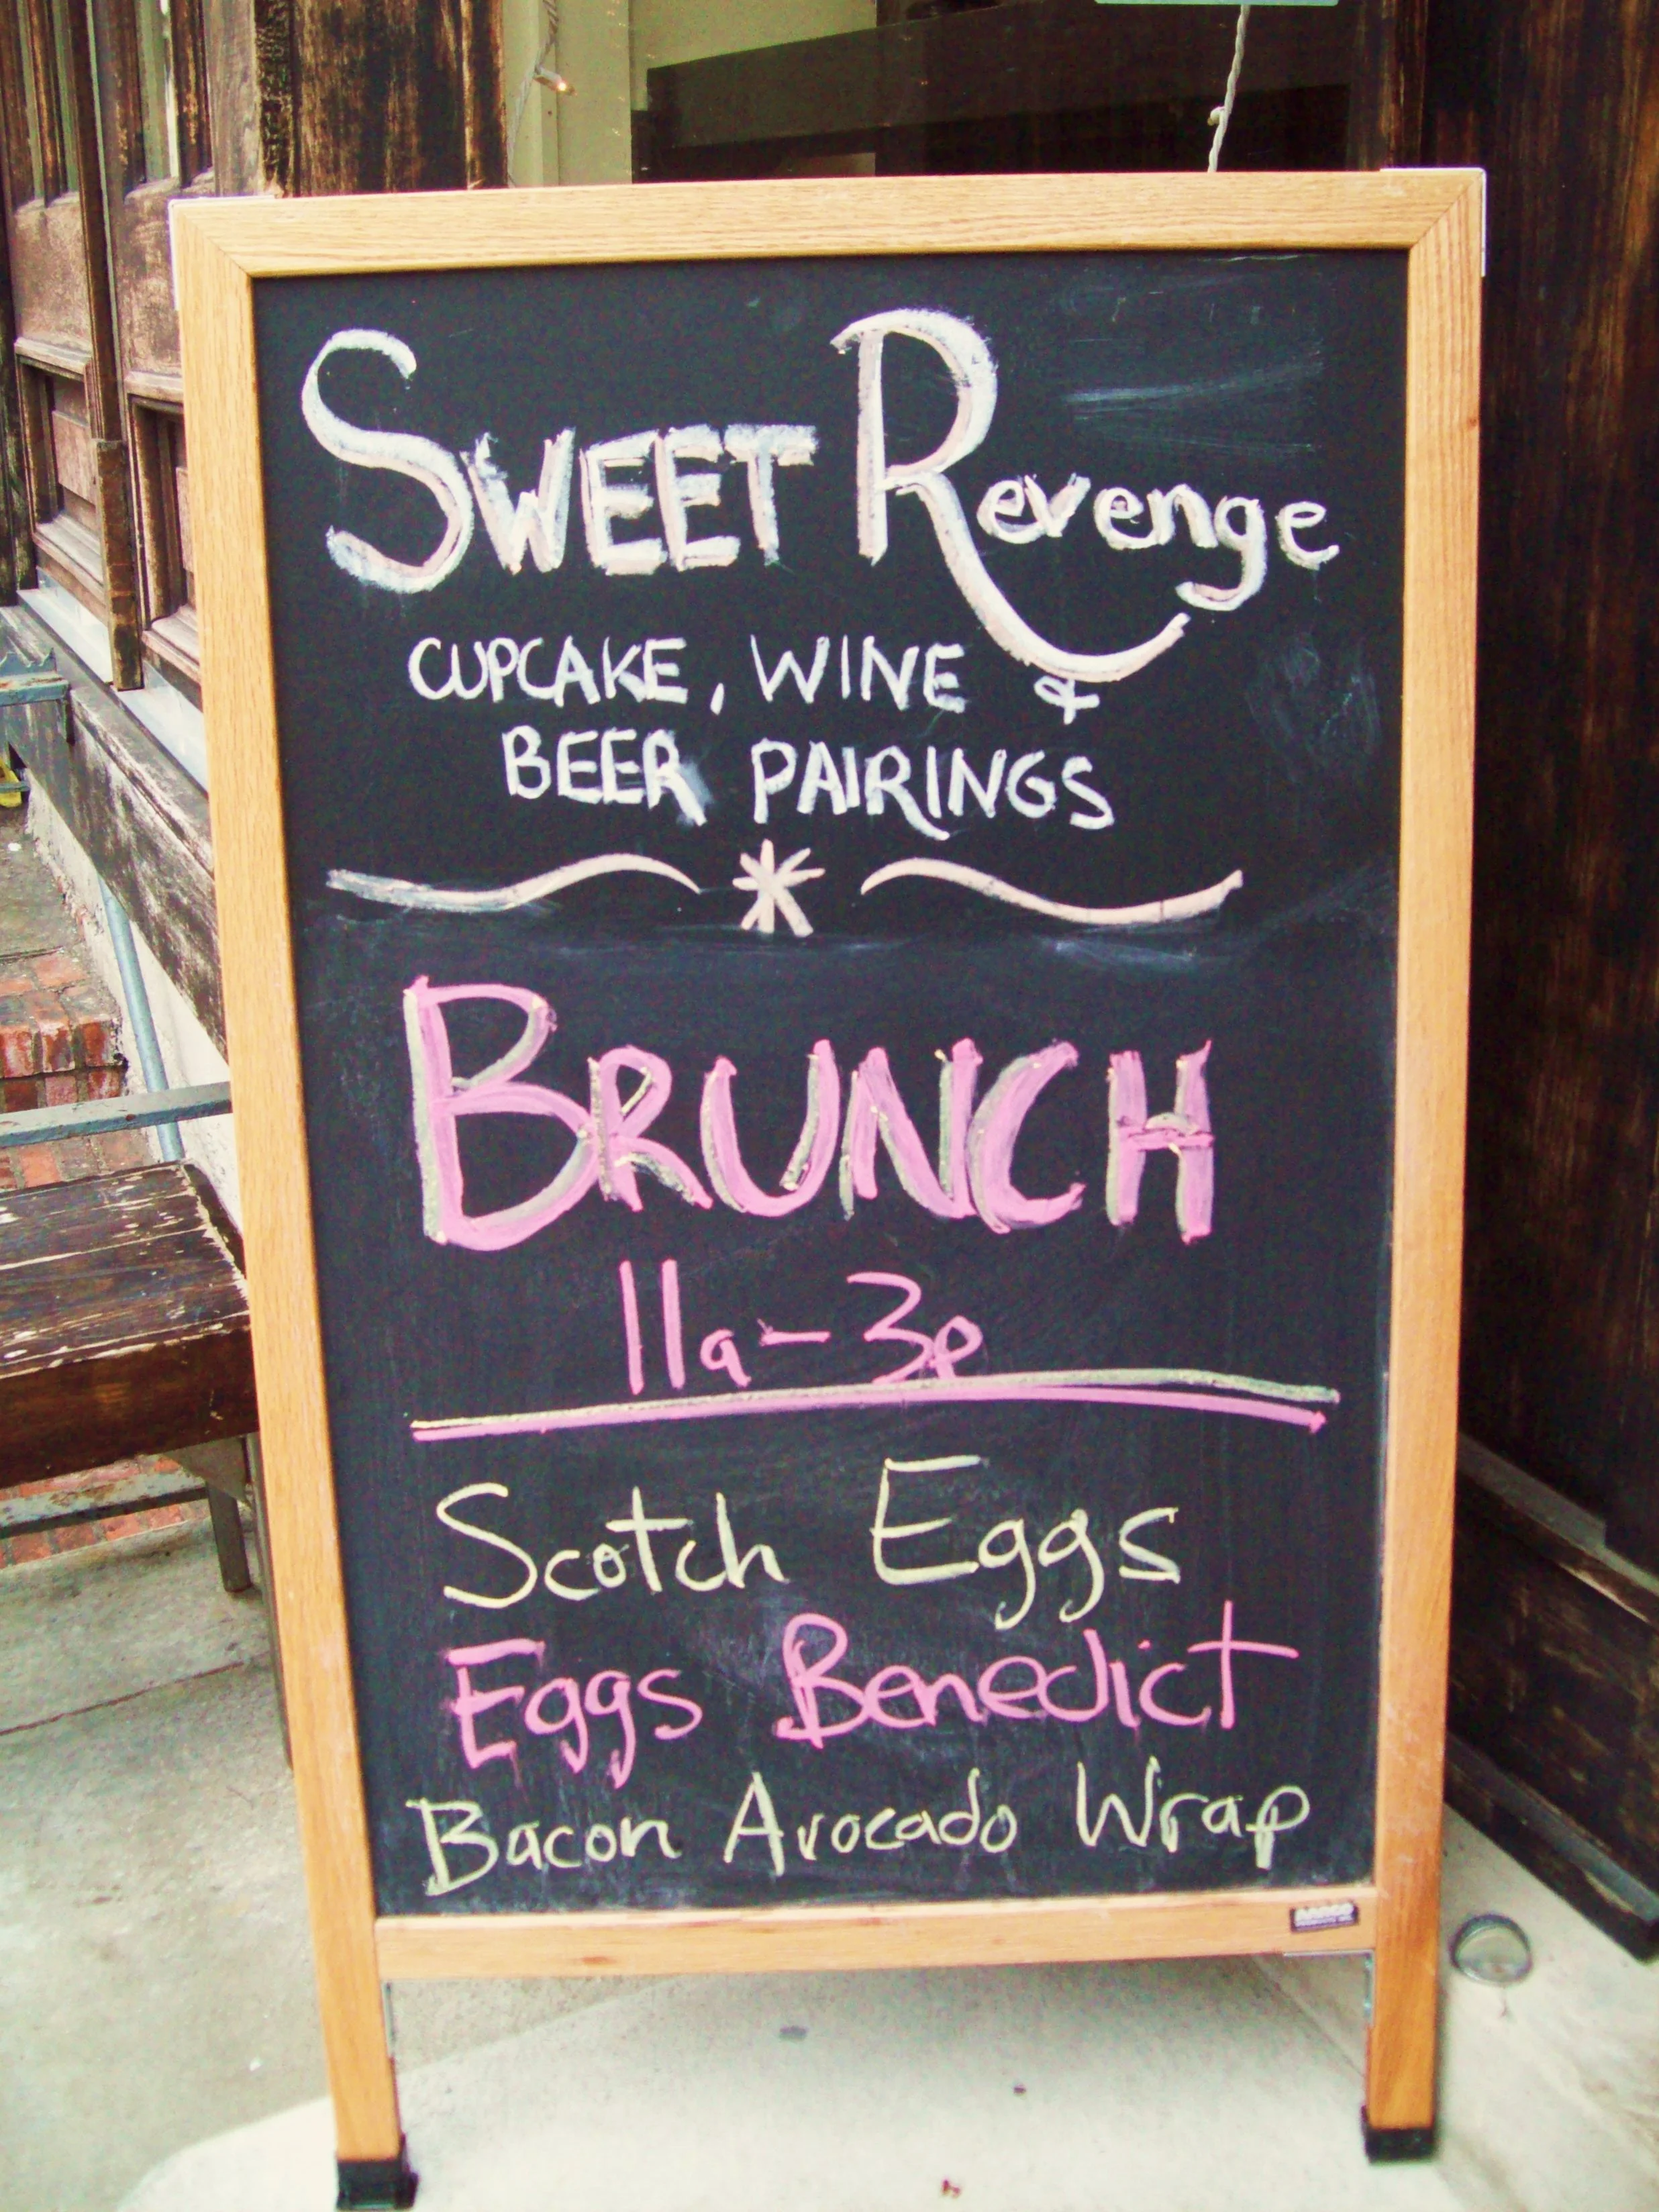 SWEET Revenge
CUPCAKE, WINE &
BEER PAIRINGS
BRUNCH
11a-3p
Scotch Eggs
Eggs Benedict
Bacon Avocado Wrap